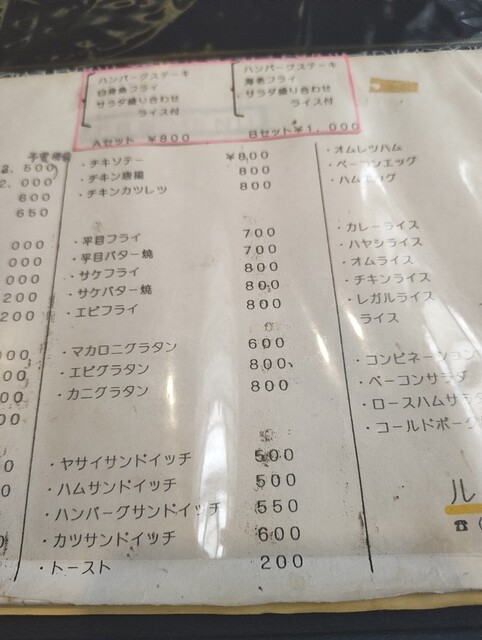 ハンバーグステーキ
白身魚フライ
サラダ盛り合わせ
ライス付
Aセット ¥800
ハンバーグステーキ
海老フライ
サラダ盛り合わせ
ライス付
Bセット¥1,000
2,500
2,000
600
650
000
000
000
200
200
・チキソテー ¥800
・チキン唐揚 800
・チキンカツレツ 800
・平目フライ 700
・平目バター焼 700
・サケフライ 800
・サケバター焼 800
・エビフライ 800
・マカロニグラタン 600
・エビグラタン 800
・カニグラタン 800
・ヤサイサンドイッチ 500
・ハムサンドイッチ 500
・ハンバーグサンドイッチ 550
・カツサンドイッチ 600
・トースト 200
・オムレツハム
・ベーコンエッグ
・ハムエッグ
・カレーライス
・ハヤシライス
・オムライス
・チキンライス
・レガルライス
ライス
・コンビネーション
・ベーコンサラダ
・ロースハムサラダ
・コールドポーク
ル
☎(